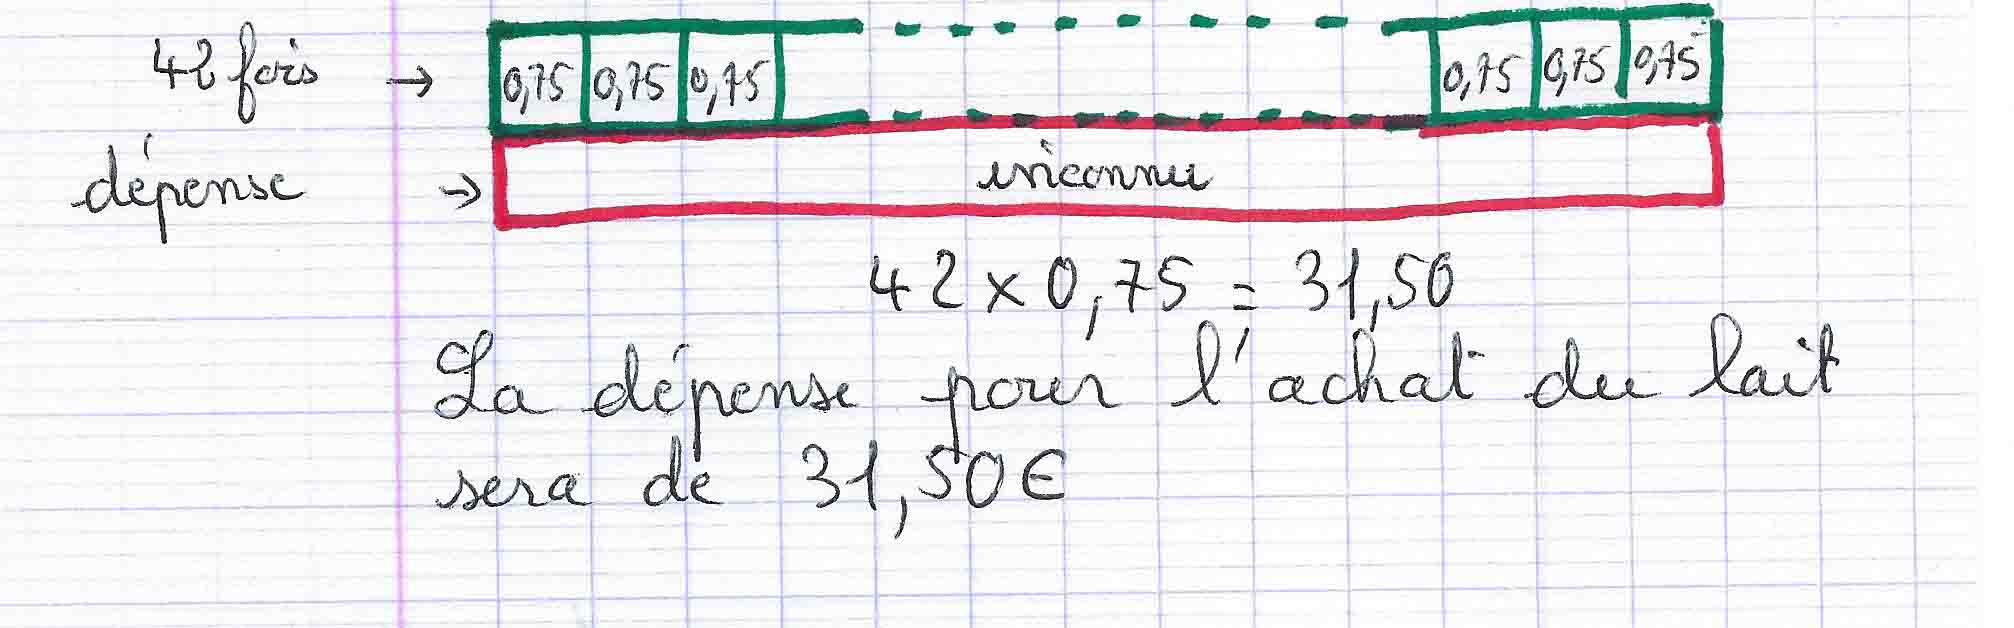 42 fois → 0,75 0,75 0,75 0,75 0,75 0,75
dépense → inconnu
42 x 0,75 = 31,50
La dépense pour l'achat du lait
sera de 31,50€